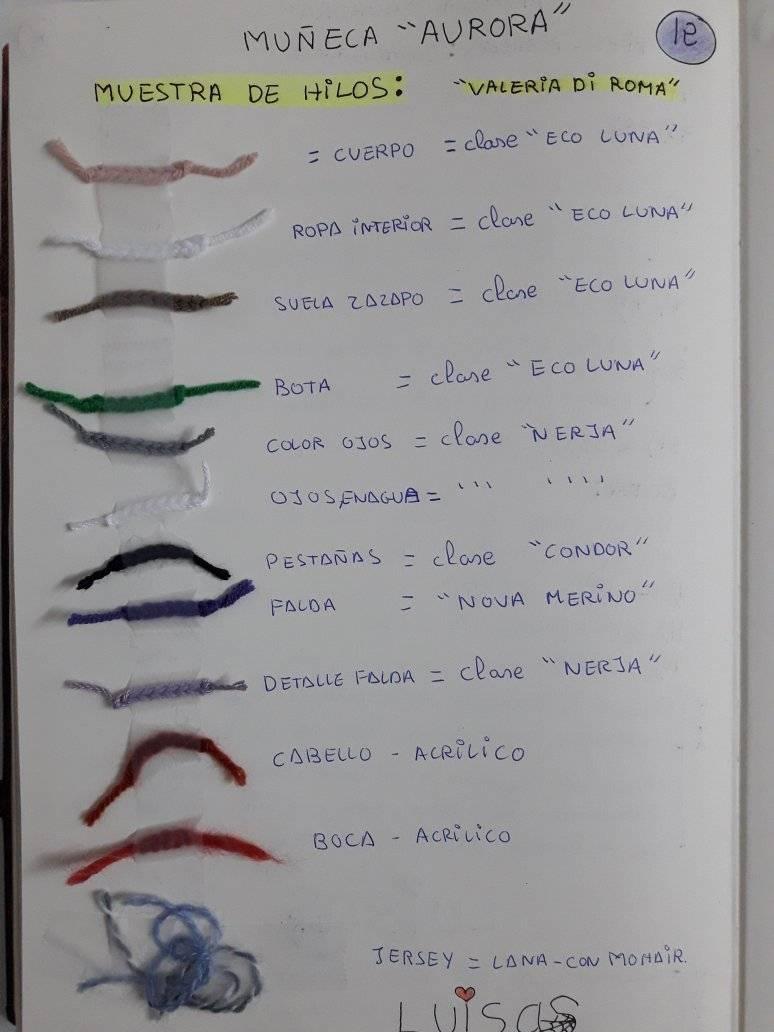 MUÑECA "AURORA"
12
MUESTRA DE HILOS: "VALERIA DI ROMA"
= CUERPO = clase "ECO LUNA"
ROPA INTERIOR = clase "ECO LUNA"
SUELA ZAZAPO = clase "ECO LUNA"
BOTA = clase "ECO LUNA"
COLOR OJOS = clase "NERJA"
OJOS, ENAGUA = ''' ''''
PESTAÑAS = clase "CONDOR"
FALDA = "NOVA MERINO"
DETALLE FALDA = clase "NERJA"
CABELLO - ACRÍLICO
BOCA - ACRÍLICO
JERSEY = LANA-CON MOHAIR.
LUISAS